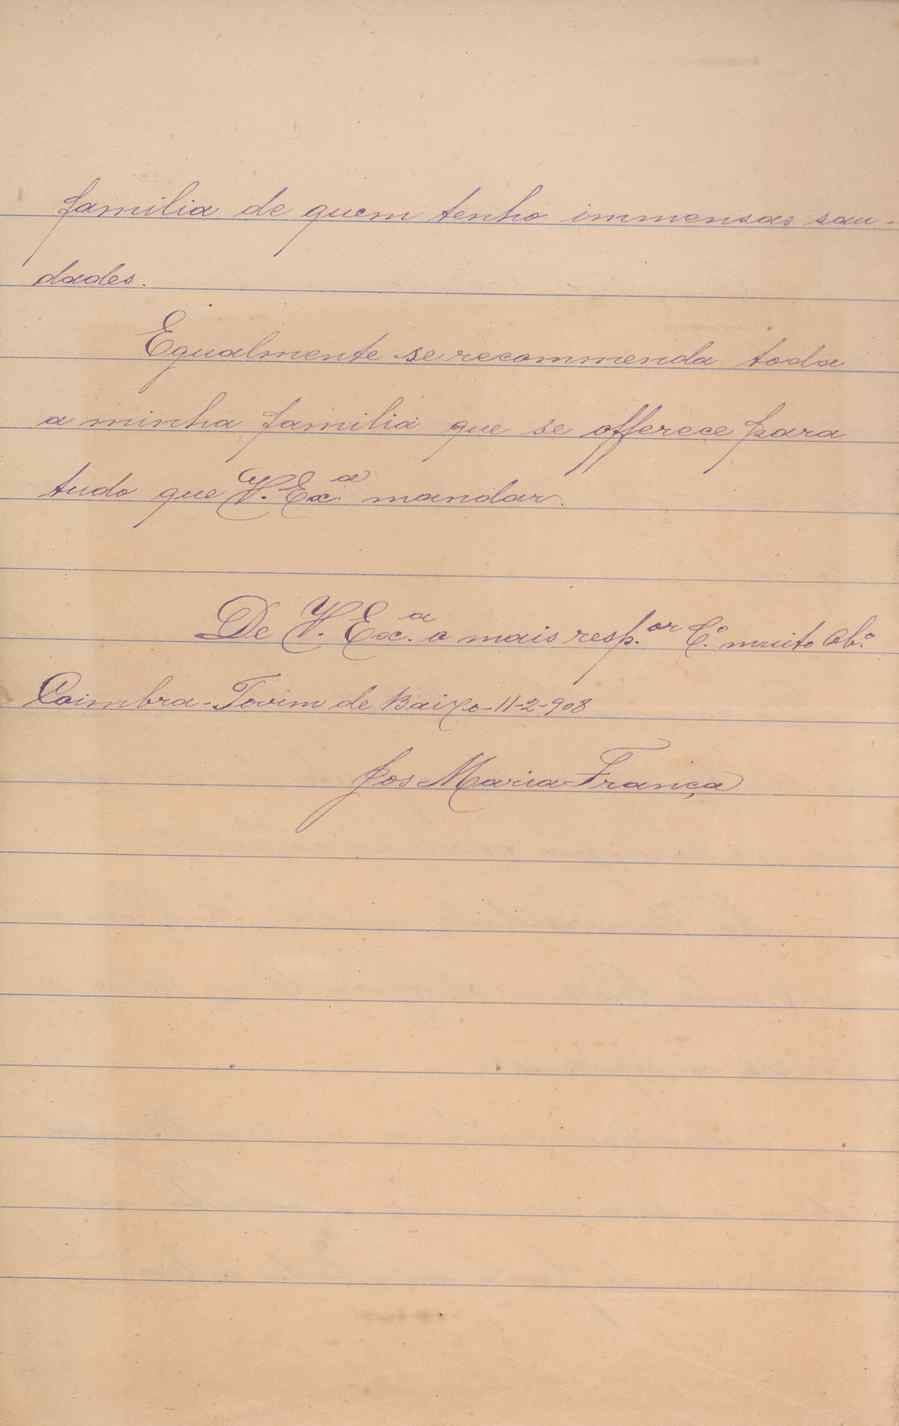 familia de quem tenho immensas sau-
dades.
Egualmente se recommenda toda
a minha familia que se offerece para
tudo que V. Ex.ª mandar.
De V. Ex.ª o mais resp.or C.º muito Ob.º
Coimbra-Tovim de Baixo-11-2-908
Jos Maria França